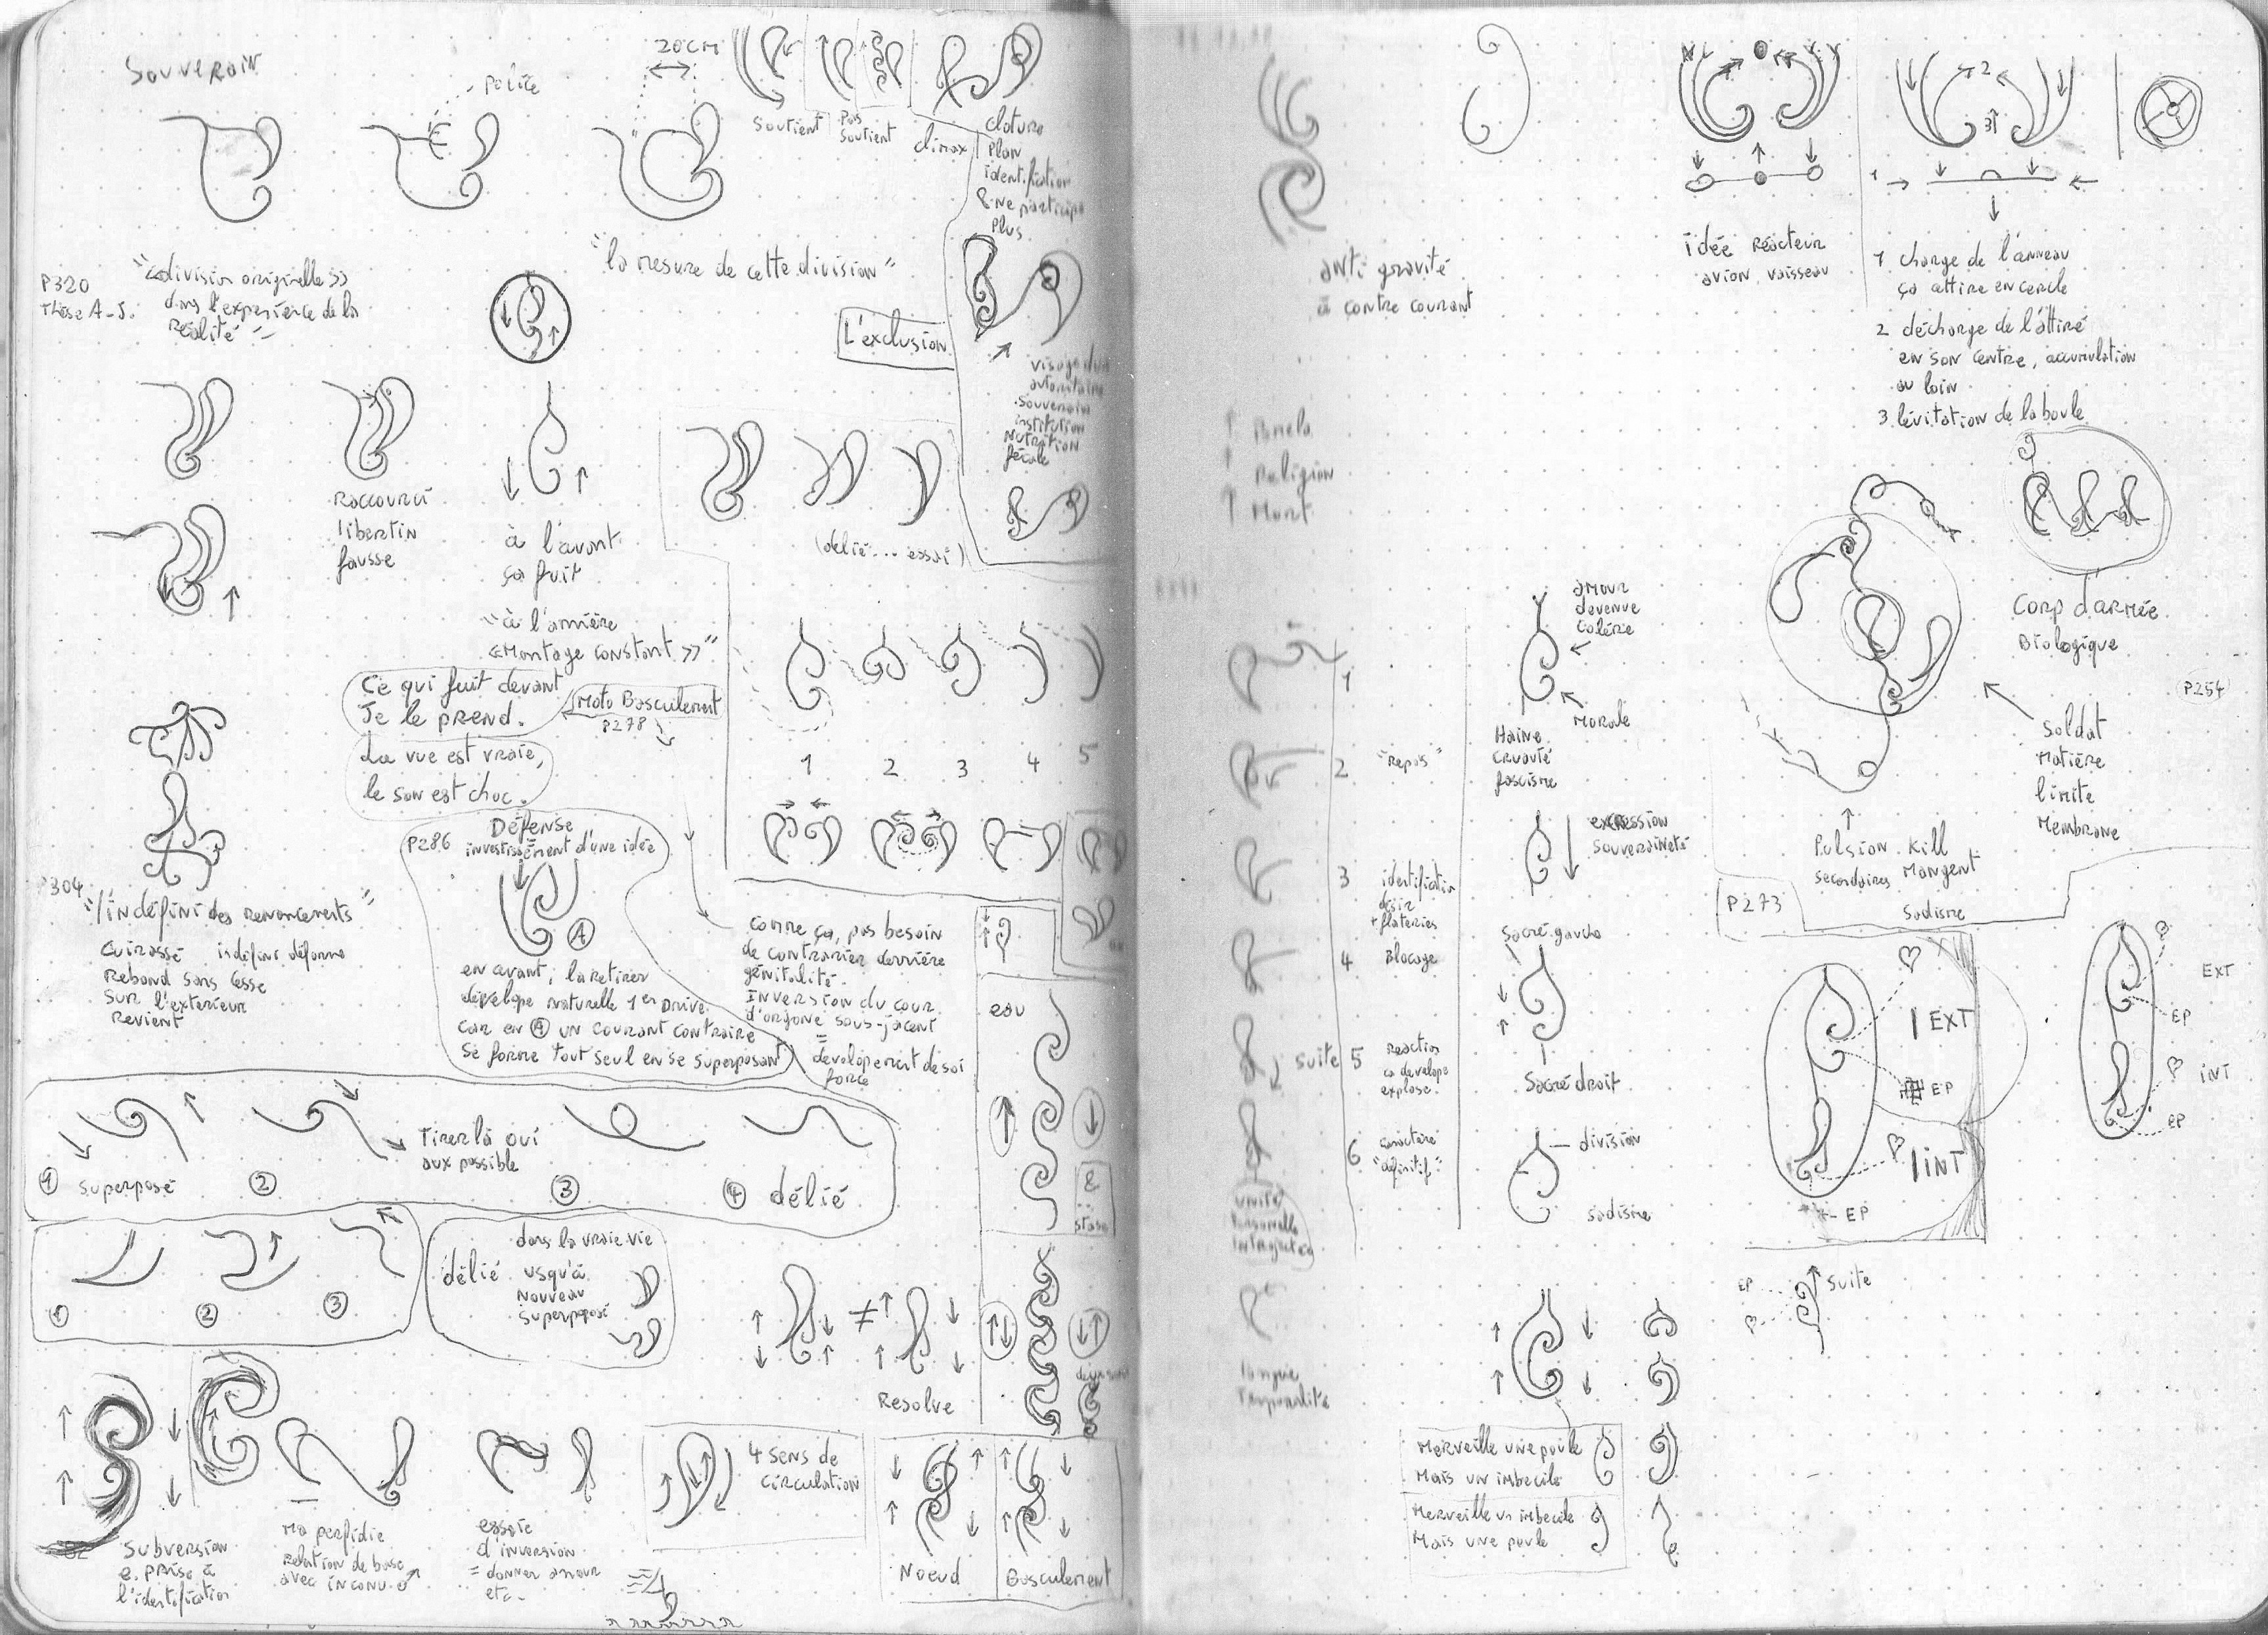 Souverain
Police
20CM
soutient
Pas
soutient
climax
cloture
Plan
identification
& ne participe
Plus
P320
Thèse A-S.
"<<division originelle>>
dans l'expérience de la
Réalité"
"la mesure de cette division"
L'exclusion
visage d'un
autoritaire
souverain
institution
Nutrition
fécale
Raccourci
libertin
fausse
à l'avant
ça fuit
"à l'arrière
<<Montage constant>>"
(délié... essai)
Ce qui fuit devant
Je le prend.
Moto Basculement
P278
La vue est vraie,
le son est choc.
1 2 3 4 5
P286
Défense
investissement d'une idée
A
en avant, la retirer
dévelope naturelle 1er Drive
car en A un courant contraire
se forme tout seul en se superposant
P304
"l'indéfini des renoncements"
cuirassé indéfini déforme
Rebond sans cesse
sur l'exterieur
Revient
comme ça, pas besoin
de contrarier derrière
génitalité.
Inversion du cour
d'orgone sous-jacent
=
dévelopement de soi
force
eau
&
stase
1 superposé
2
Tirer là oui
aux possible
3
4 délié
1
2
3
délié
dans la vraie vie
usqu'à
nouveau
superposé
≠
Resolve
subversion
e. prise à
l'identification
Ma perfidie
Relation de base
avec inconnu
essaie
d'inversion
= donner amour
etc.
4 sens de
circulation
Noeud
Basculement
anti gravité
à contre courant
idée Réacteur
avion vaisseau
2
3
1
1 charge de l'anneau
ça attire en cercle
2 décharge de l'attiré
en son centre, accumulation
au loin
3 lévitation de la boule
Religion
Mort
1
2 "Repos"
3 identification
désir
+ flateries
4 Blocage
suite 5 Reaction
ça dévelope
explose
6 caractère
"définitif"
unité
Personnelle
introjectée
longue
Temporalité
amour
devenue
colérie
Morale
Haine
cruauté
fascisme
expression
souveraineté
Sacré gauche
Sacré droit
division
sadisme
Corp d'armée
Biologique
P254
soldat
Matière
limite
Membrane
Pulsion Kill
secondaires Mangent
Sadisme
P273
EXT
EP
INT
EP
EXT
EP
INT
EP
EP
suite
Merveille une poule
Mais un imbecile
Merveille un imbecile
Mais une poule